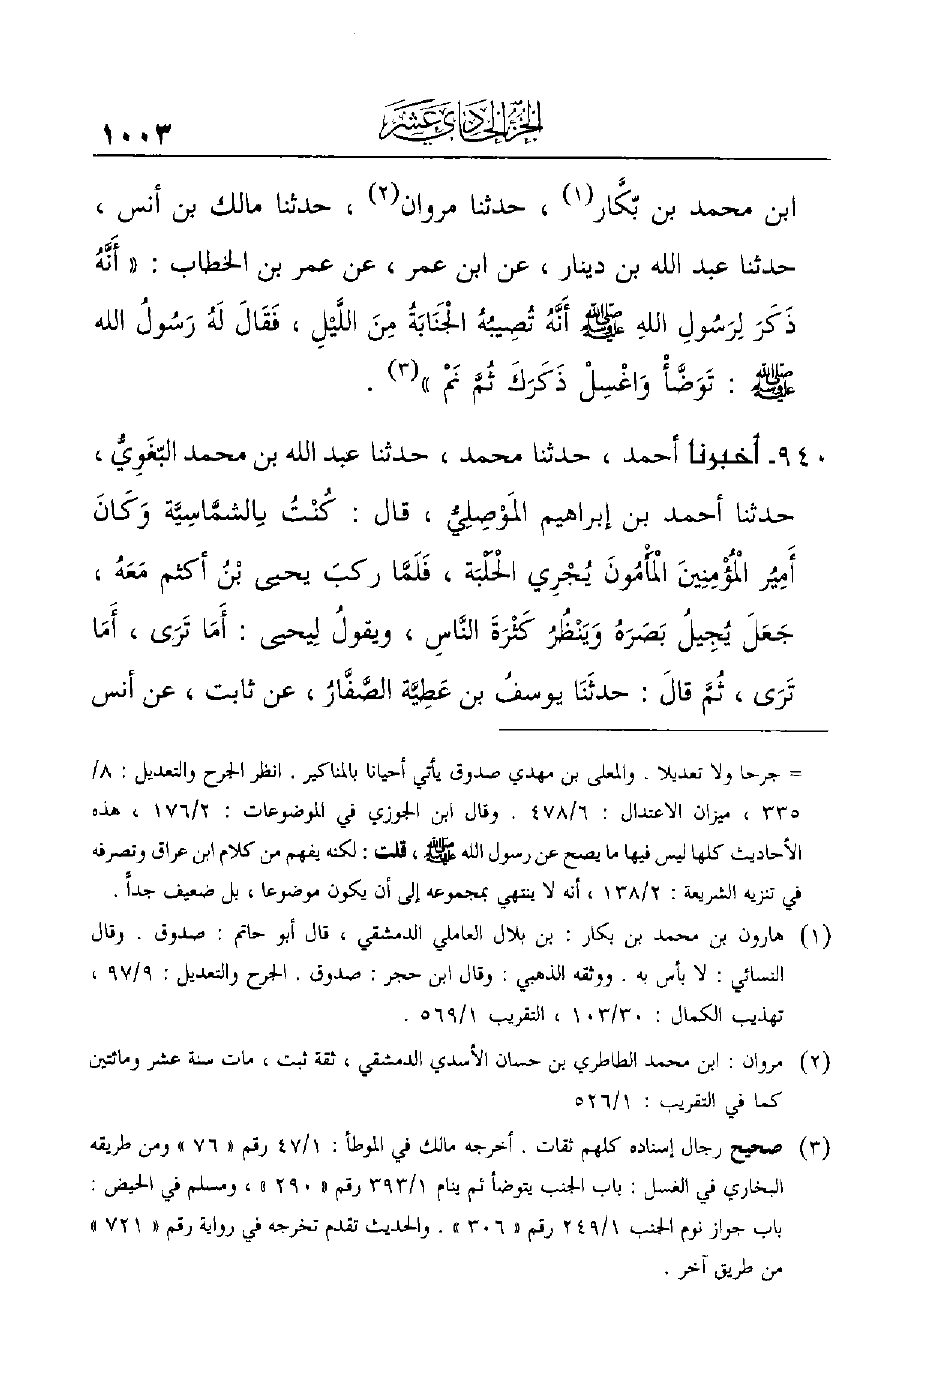 الجزء الحادي عشر ١٠٠٣
ابن محمد بن بَكَّار(١) ، حدثنا مروان(٢) ، حدثنا مالك بن أنس ،
حدثنا عبد الله بن دينار ، عن ابن عمر ، عن عمر بن الخطاب : « أَنَّهُ
ذَكَرَ لِرَسُولِ اللهِ ﷺ أَنَّهُ تُصِيبُهُ الجَنَابَةُ مِنَ اللَّيْلِ ، فَقَالَ لَهُ رَسُولُ الله
ﷺ : تَوَضَّأْ وَاغْسِلْ ذَكَرَكَ ثُمَّ نَمْ »(٣) .
٩٤٠ـ أخبرنا أحمد ، حدثنا محمد ، حدثنا عبد الله بن محمد البَغَوِيُّ ،
حدثنا أحمد بن إبراهيم المَوْصِلِيُّ ، قال : كُنْتُ بِالشمَّاسِيَّة وَكَانَ
أَمِيُر الْمُؤْمِنِينَ الْمَأْمُونَ يُجْرِي الحَلْبَة ، فَلَمَّا ركبَ يحيى بْنُ أكثم مَعَهُ ،
جَعَلَ يُجِيلُ بَصَرَهُ وَيَنْظُرُ كَثْرَةَ النَّاسِ ، ويقولُ لِيحيى : أَمَا تَرَى ، أَمَا
تَرَى ، ثُمَّ قالَ : حدثَنَا يوسفُ بن عَطِيَّة الصَّفَّارُ ، عن ثابت ، عن أنس
= جرحا ولا تعديلا . والمعلى بن مهدي صدوق يأتي أحيانا بالمناكير . انظر الجرح والتعديل : ٨/
٣٣٥ ، ميزان الاعتدال : ٤٧٨/٦ . وقال ابن الجوزي في الموضوعات : ١٧٦/٢ ، هذه
الأحاديث كلها ليس فيها ما يصح عن رسول الله ﷺ ، قلت : لكنه يفهم من كلام ابن عراق وتصرفه
في تنزيه الشريعة : ١٣٨/٢ ، أنه لا ينتهي بمجموعه إلى أن يكون موضوعا ، بل ضعيف جداً .
(١) هارون بن محمد بن بكار : بن بلال العاملي الدمشقي ، قال أبو حاتم : صدوق . وقال
النسائي : لا بأس به . ووثقه الذهبي : وقال ابن حجر : صدوق . الجرح والتعديل : ٩٧/٩ ،
تهذيب الكمال : ١٠٣/٣٠ ، التقريب ٥٦٩/١ .
(٢) مروان : ابن محمد الطاطري بن حسان الأسدي الدمشقي ، ثقة ثبت ، مات سنة عشر ومائتين
كما في التقريب : ٥٢٦/١
(٣) صحيح رجال إسناده كلهم ثقات . أخرجه مالك في الموطأ : ٤٧/١ رقم « ٧٦ » ومن طريقه
البخاري في الغسل : باب الجنب يتوضأ ثم ينام ٣٩٣/١ رقم « ٢٩٠ » ، ومسلم في الحيض :
باب جواز نوم الجنب ٢٤٩/١ رقم « ٣٠٦ » . والحديث تقدم تخرجه في رواية رقم « ٧٢١ »
من طريق آخر .